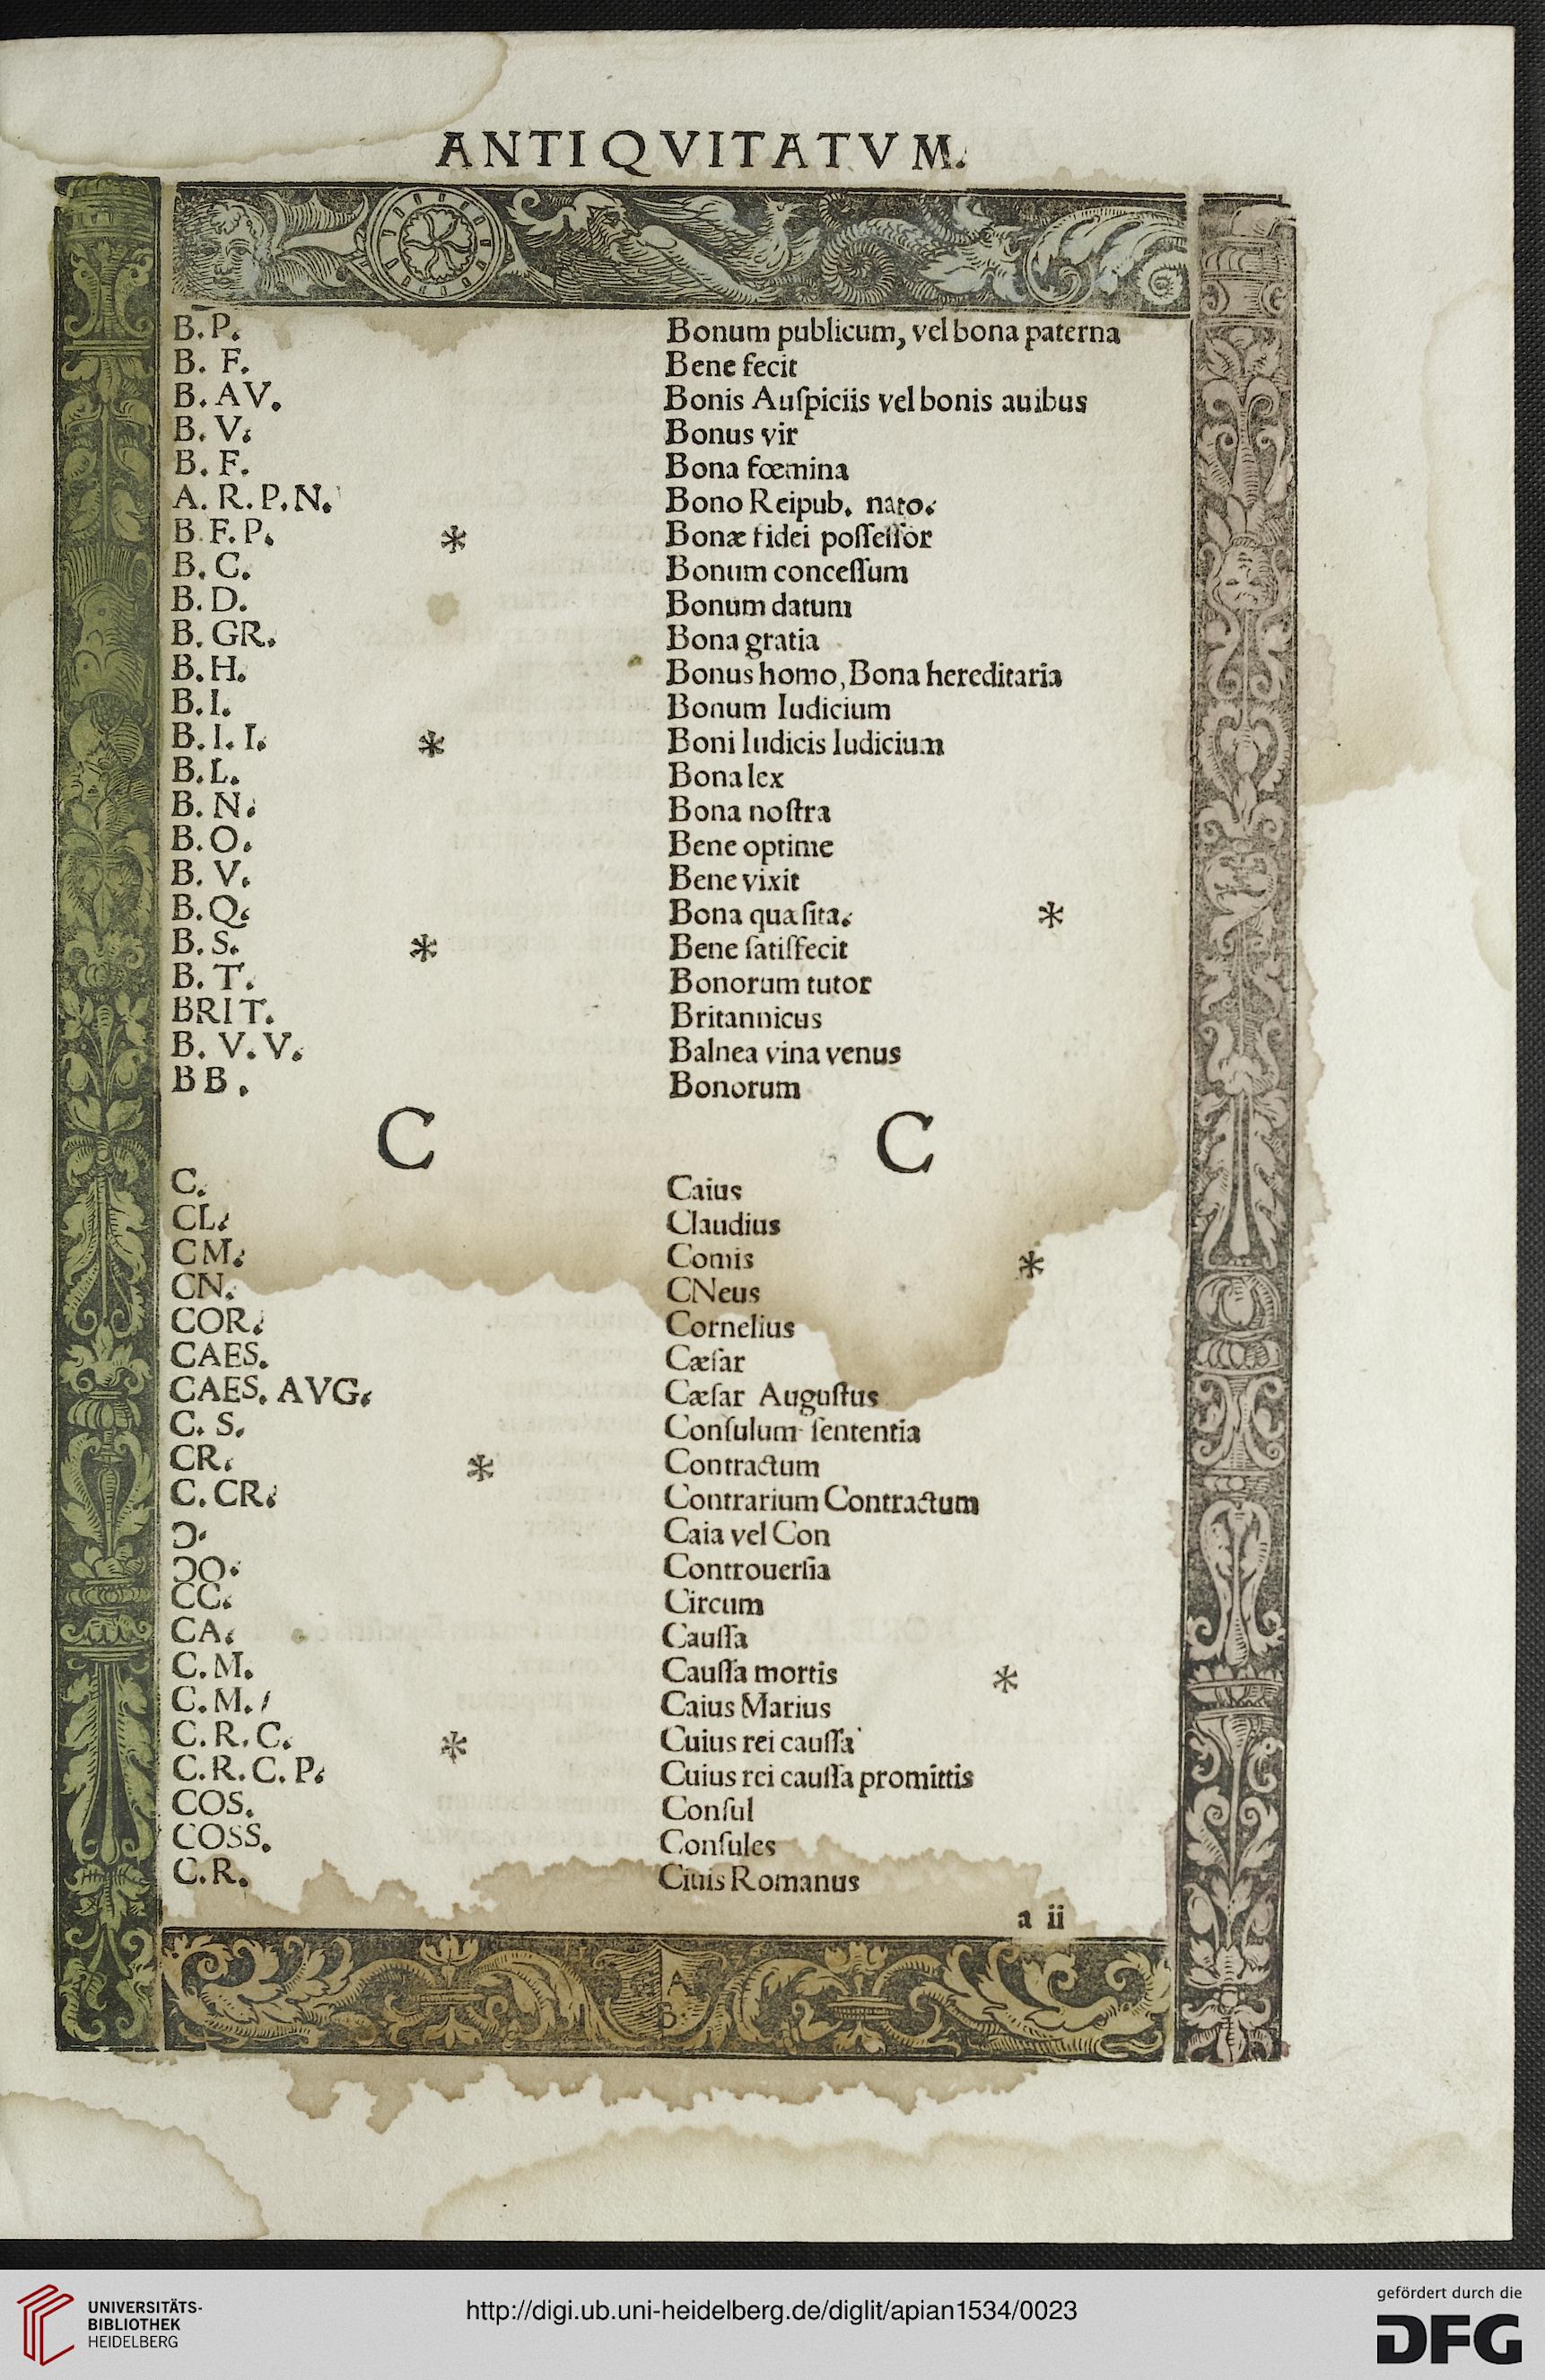 ANTIQVITATVM.
B. P. Bonum publicum, vel bona paterna
B. F. Bene fecit
B. AV. Bonis Auſpiciis vel bonis auibus
B. V. Bonus vir
B. F. Bona fœmina
A. R. P. N. Bono Reipub. nato.
B. F. P. * Bonæ fidei poſſeſſor
B. C. Bonum conceſſum
B. D. Bonum datum
B. GR. Bona gratia
B. H. Bonus homo, Bona hereditaria
B. I. Bonum Iudicium
B. I. I. * Boni Iudicis Iudicium
B. L. Bona lex
B. N. Bona noſtra
B. O. Bene optime
B. V. Bene vixit
B. Q. Bona quæſita. *
B. S. * Bene ſatiſfecit
B. T. Bonorum tutor
BRIT. Britannicus
B. V. V. Balnea vina venus
BB. Bonorum
C C
C. Caius
CL. Claudius
CM. Comis *
CN. CNeus
COR. Cornelius
CAES. Cæſar
CAES. AVG. Cæſar Auguſtus
C. S. Conſulum ſententia
CR. * Contractum
C. CR. Contrarium Contractum
Ɔ. Caia vel Con
ƆO. Controuerſia
CC. Circum
CA. Cauſſa
C. M. Cauſſa mortis *
C. M. Caius Marius
C. R. C. * Cuius rei cauſſa
C. R. C. P. Cuius rei cauſſa promittis
COS. Conſul
COSS. Conſules
C. R. Ciuis Romanus
a ii
A
B
UNIVERSITÄTS-
BIBLIOTHEK
HEIDELBERG
http://digi.ub.uni-heidelberg.de/diglit/apian1534/0023
gefördert durch die
DFG